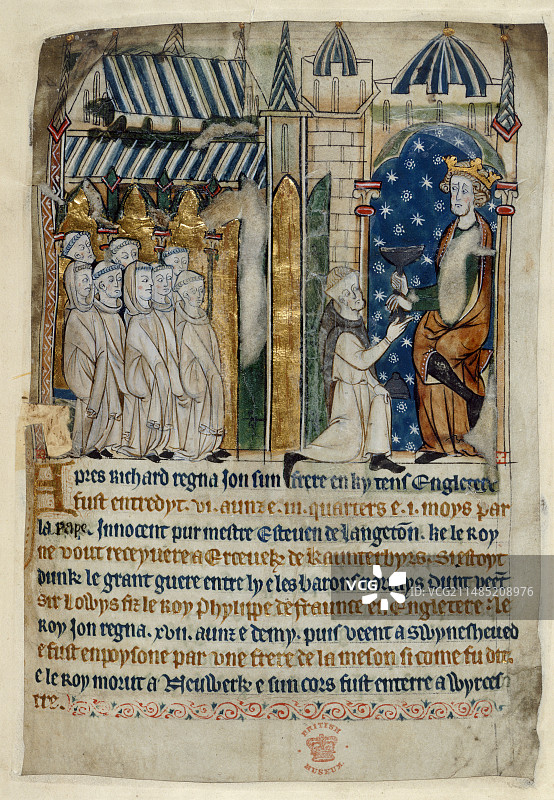 Apres Richard regna Jon sun frere en ky tens Engletere
fust entredyt. vi. aunz e. iii. quarters e. i. moys par
la Pape. Innocent pur mestre Esteven de Langeton. ke le Roy
ne vout receyvere a Erceveke de Kaunterbyrs. Si estoyt
dunk le grant guere entre ly e les barons dunt veent
sir Lowys fiz le Roy Phylippe de fraunce en Engletere. Le
Roy Jon regna. xvii. aunz e demy. puis veent a Swynesheued
e fust enpoysone par vne frere de la meson si come fu dit.
e le Roy morut a Neuwerk e sun cors fust enterre a Wyrces
tre.
BRITISH
MUSEUM
VCG
视觉中国
ID:VCG211485208976